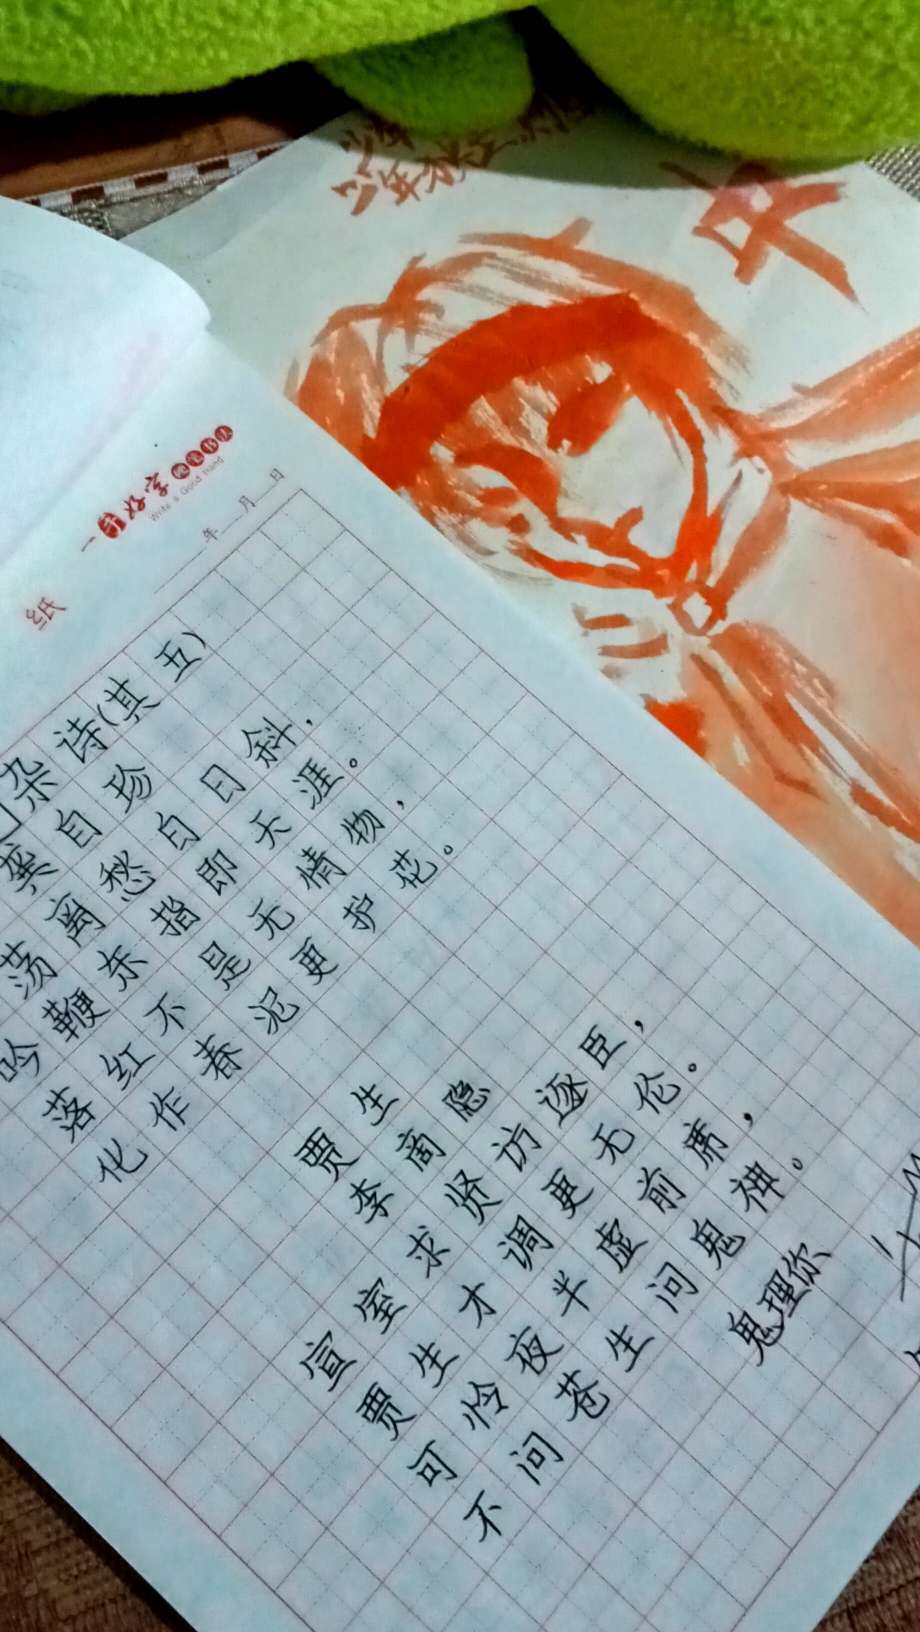 少年
一手好字
硬笔书法
Write a Good Hand
年 月 日
纸
杂诗(其五)
龚自珍
荡离愁白日斜，
吟鞭东指即天涯。
落红不是无情物，
化作春泥更护花。
贾生
李商隐
宣室求贤访逐臣，
贾生才调更无伦。
可怜夜半虚前席，
不问苍生问鬼神。
鬼理你